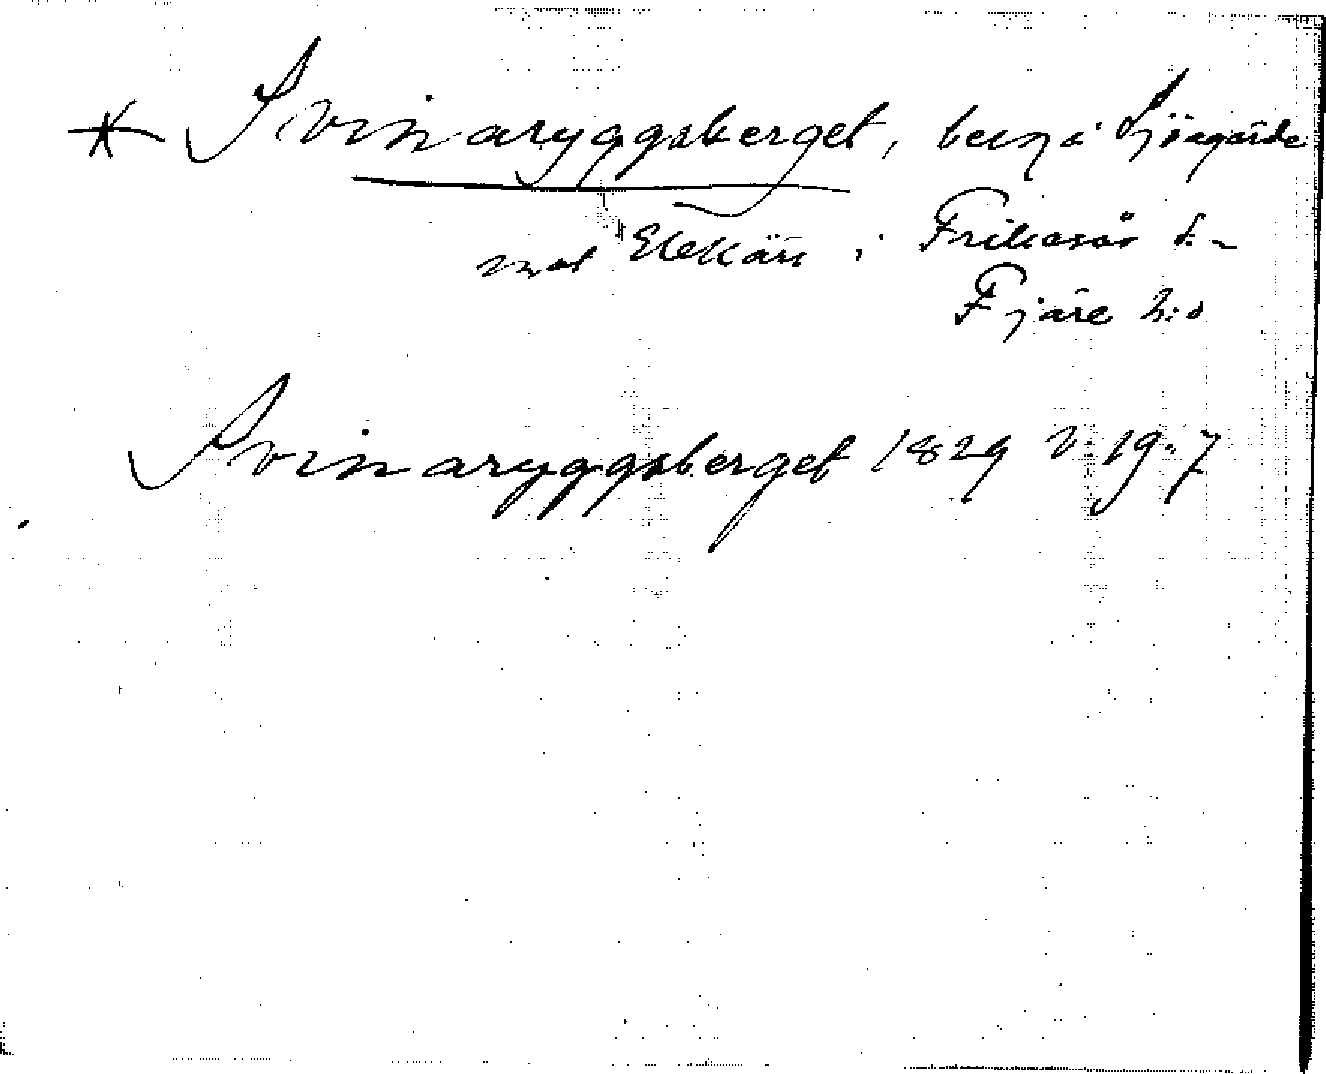 * Svinaryggsberget, berg å Sjögärde
mot Ekekärr i Frillesås s:n
Fjäre h:d
Svinaryggsberget 1829 V: 19: 7